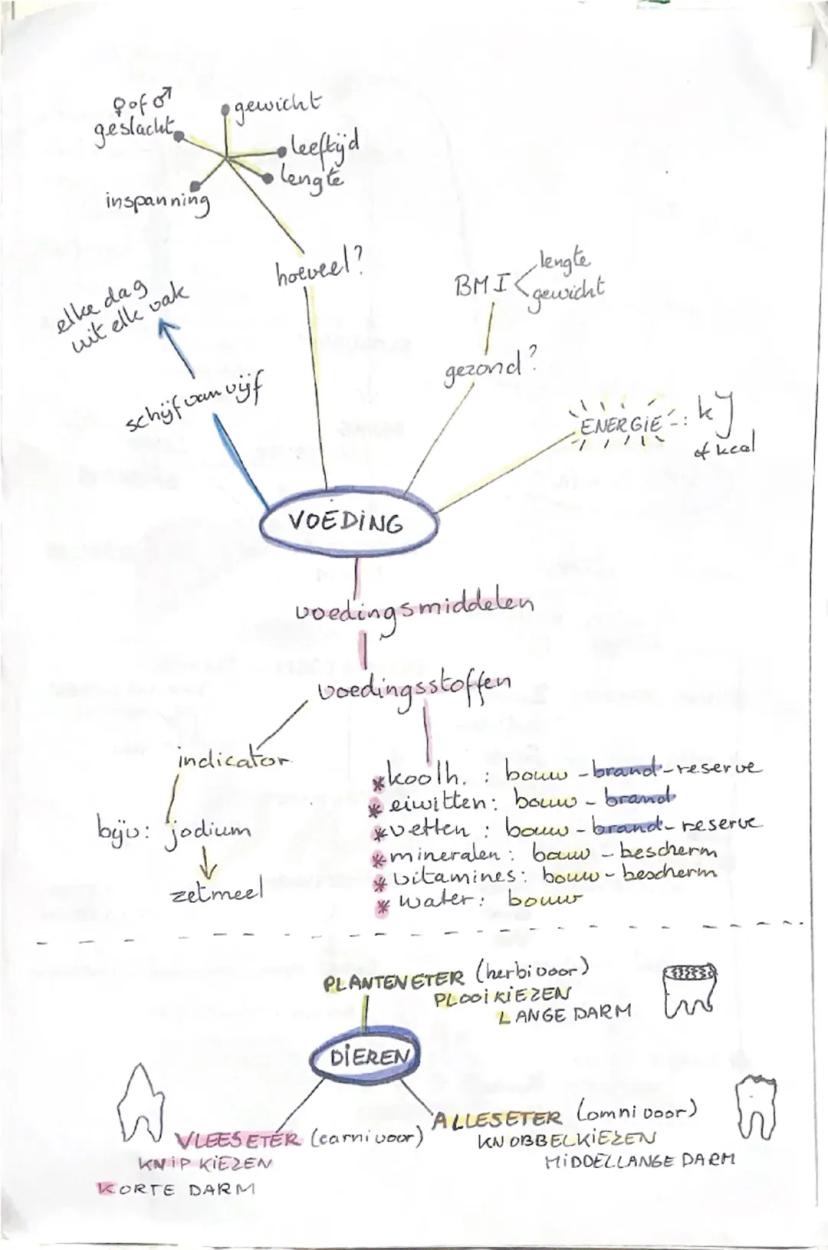 ♀ of ♂
geslacht
gewicht
leeftijd
lengte
inspanning
hoeveel?
elke dag
uit elk vak
schijf van vijf
BMI
lengte
gewicht
gezond?
ENERGIE : kJ
of kcal
VOEDING
voedingsmiddelen
voedingsstoffen
indicator
bijv: jodium
zetmeel
* koolh. : bouw - brand - reserve
* eiwitten: bouw - brand
* vetten : bouw - brand - reserve
* mineralen: bouw - bescherm
* vitamines: bouw - bescherm
* water: bouw
PLANTENETER (herbivoor)
PLOOIKIEZEN
LANGE DARM
DIEREN
VLEESETER (carnivoor)
KNIPKIEZEN
KORTE DARM
ALLESETER (omnivoor)
KNOBBELKIEZEN
MIDDELLANGE DARM